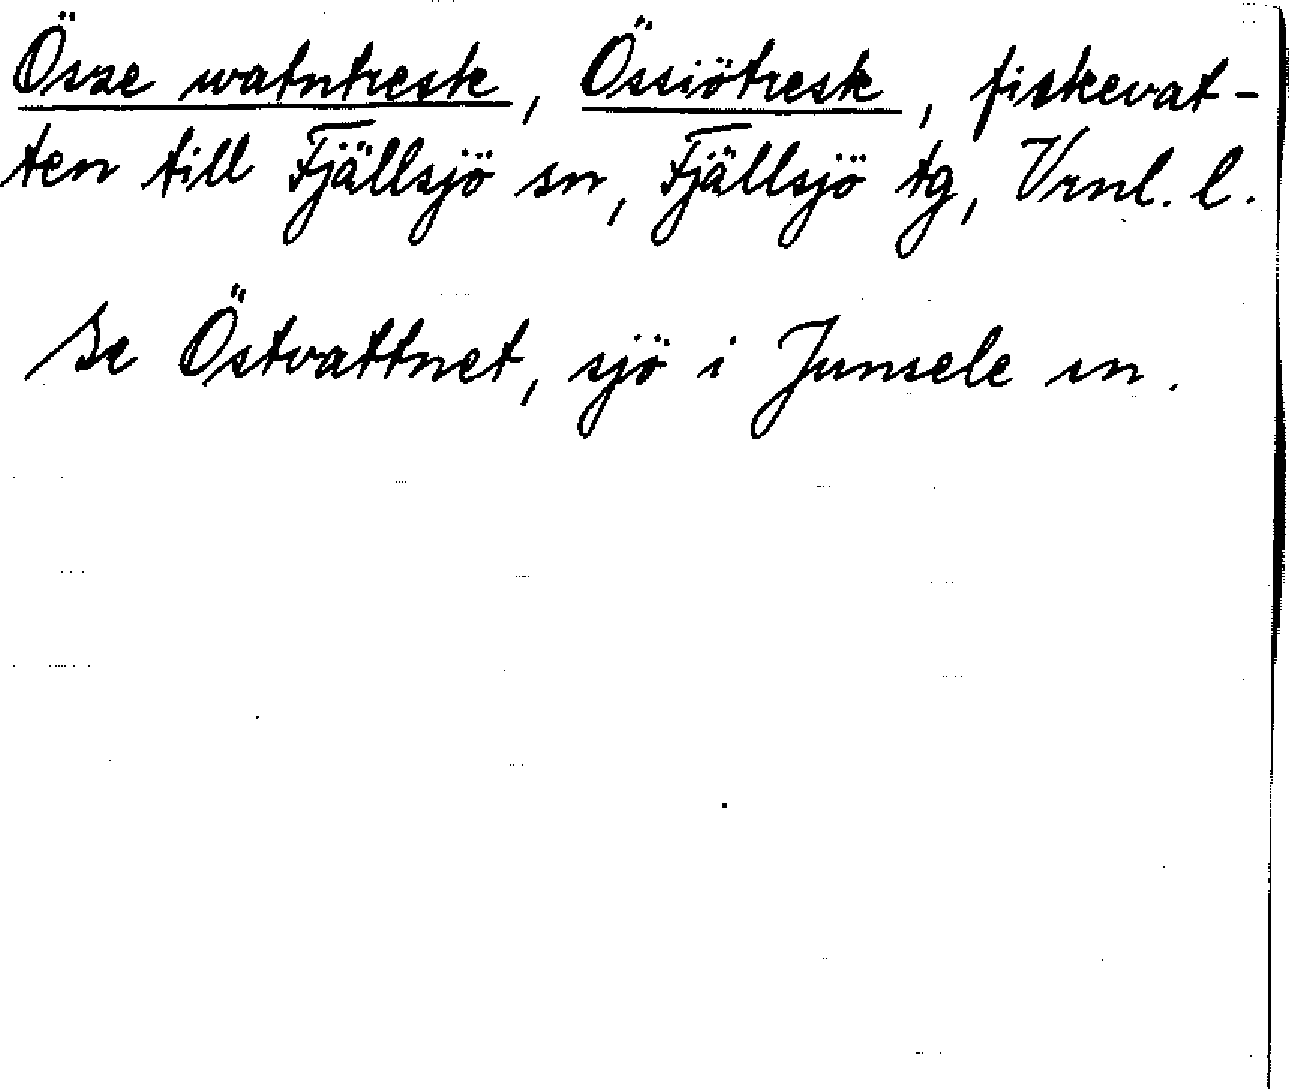 Össe watntresk, Össiötresk, fiskevat-
ten till Fjällsjö sn, Fjällsjö tg, Vrnl. l.
Se Östvattnet, sjö i Junsele sn.